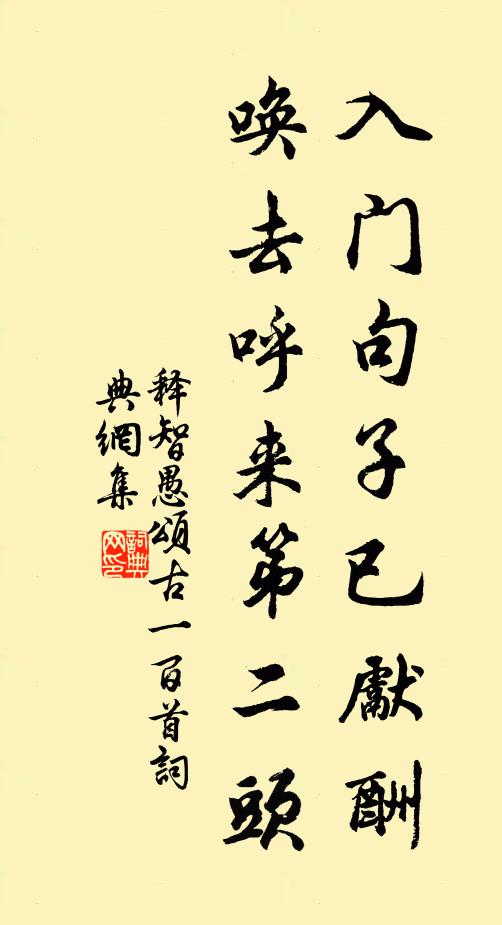 入门句子已獻酬
唤去呼来第二頭
释智愚頌古一百首詞
典網集
詞典网印